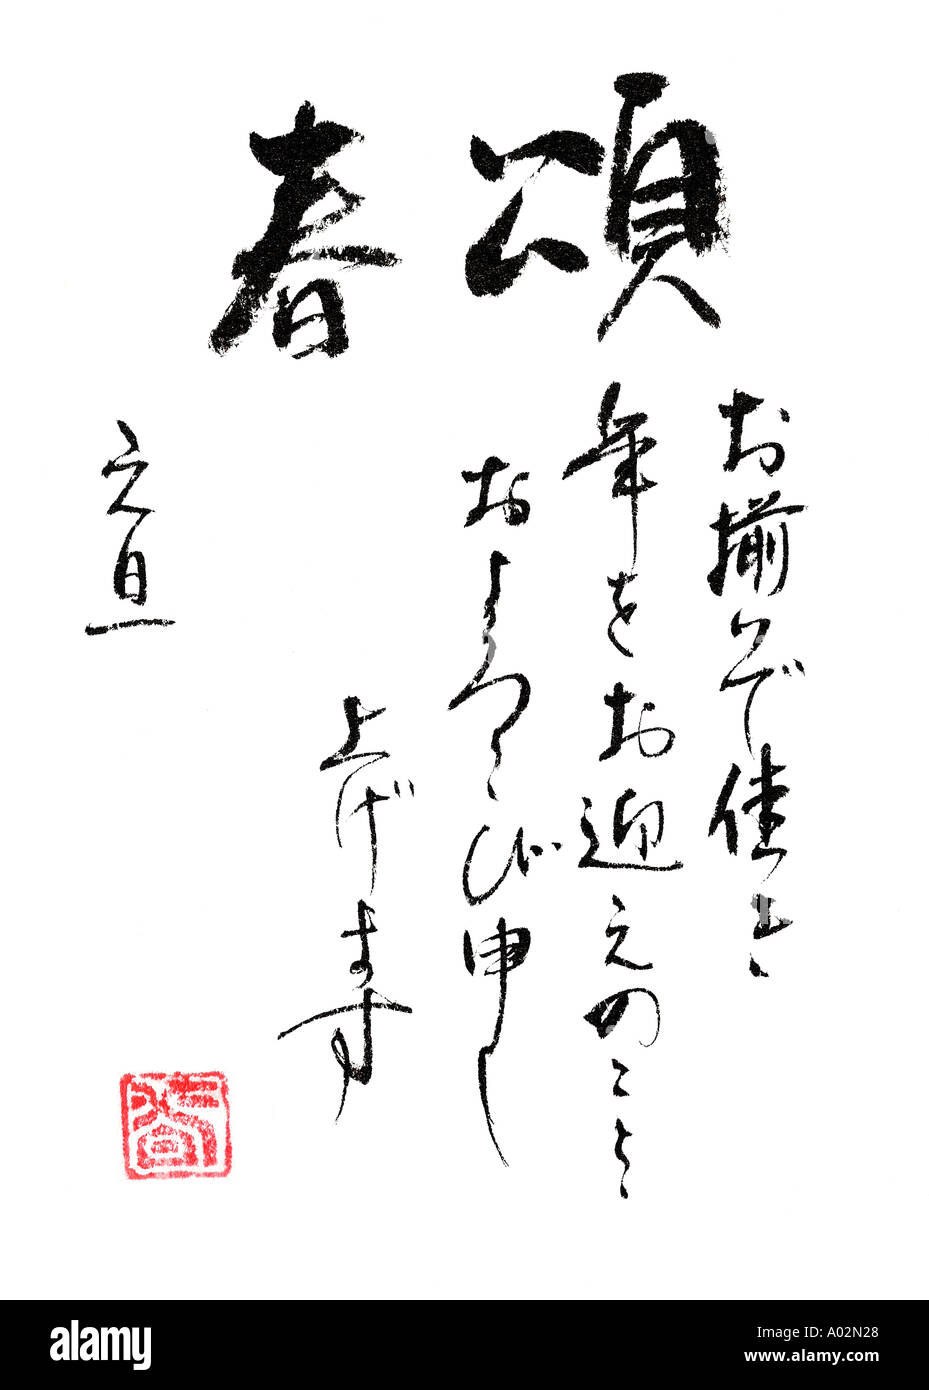 頌春
お揃いで佳き
年をお迎えのことと
およろこび申し
上げます
元旦
alamy
Image ID: A02N28
www.alamy.com